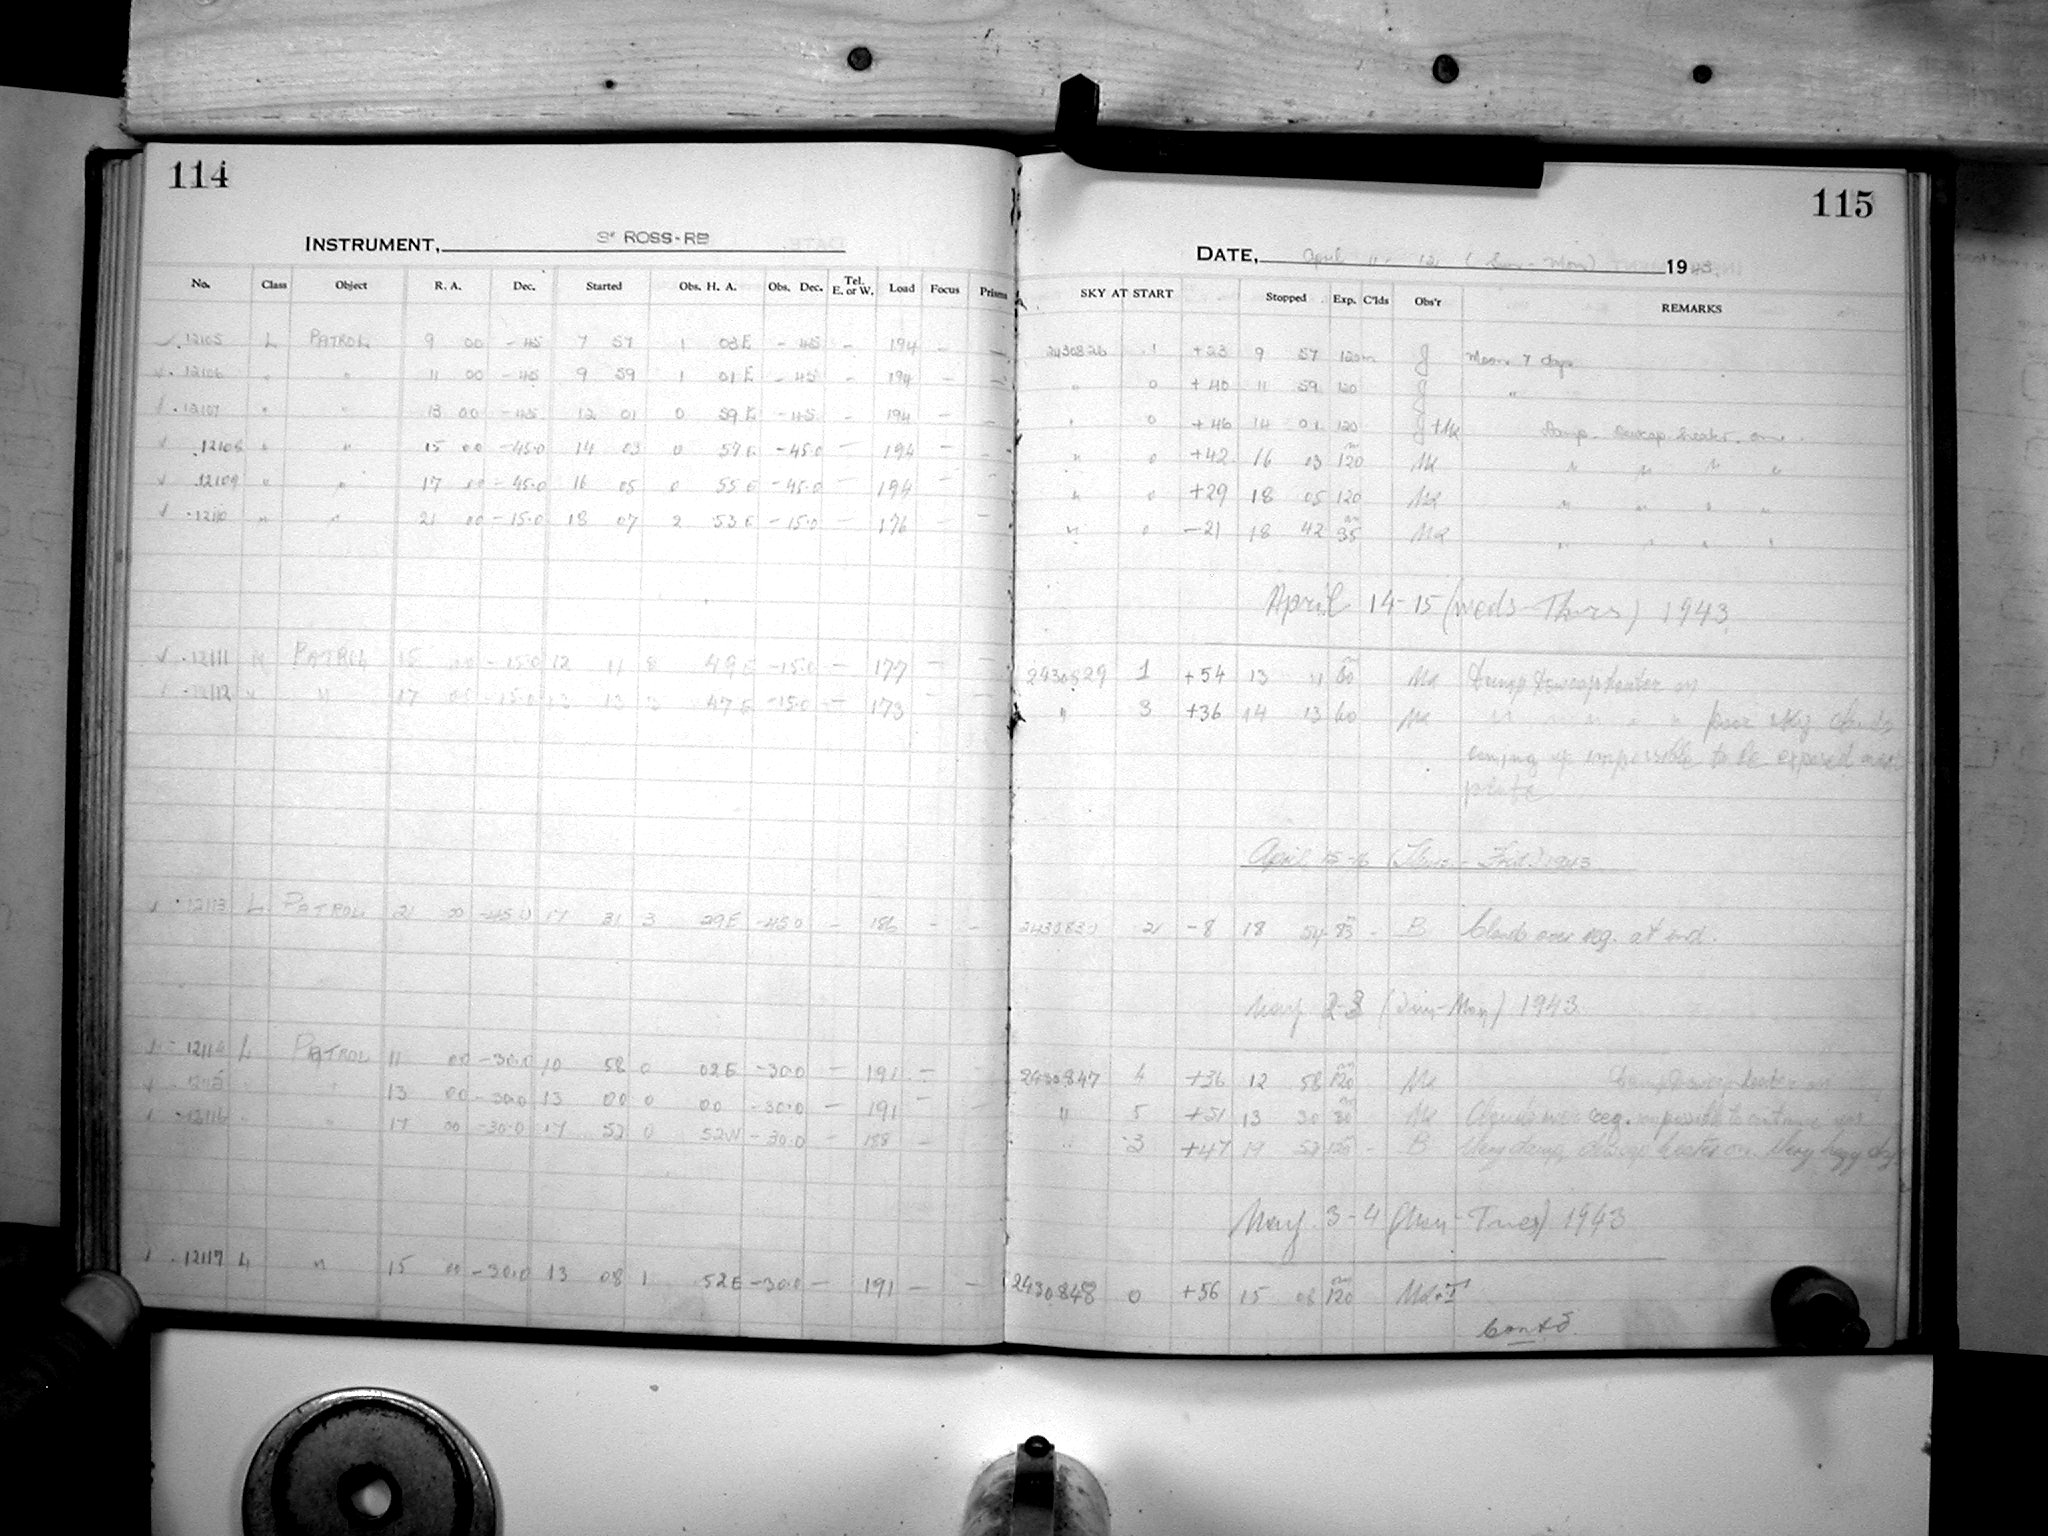 114
INSTRUMENT, 3" ROSS-RB
No. Class Object R. A. Dec. Started Obs. H. A. Obs. Dec. Tel. E. or W. Load Focus Prisms
12105 L PATROL 9 00 -45 7 57 1 03E -45 - 194 - -
12106 " " 11 00 -45 9 59 1 01E -45 - 194 - -
12107 " " 13 00 -45 12 01 0 59E -45 - 194 - -
12108 " " 15 00 -45.0 14 03 0 57E -45.0 - 194 - -
12109 " " 17 00 -45.0 16 05 0 55E -45.0 - 194 - -
12110 " " 21 00 -15.0 18 07 2 53E -15.0 - 176 - -
12111 PATROL 15 00 -15.0 12 11 49E -15.0 - 177 - -
12112 " " 17 00 -15.0 13 13 3 47E -15.0 - 173 - -
12113 L PATROL 21 00 -45.0 17 31 3 29E -45.0 - 186 - -
12114 L PATROL 11 00 -30.0 10 58 0 02E -30.0 - 191 - -
12115 " " 13 00 -30.0 13 00 0 00 -30.0 - 191 - -
12116 " " 17 00 -30.0 17 52 0 52W -30.0 - 188 - -
12117 L " 15 00 -30.0 13 08 1 52E -30.0 - 191 - -
115
DATE, April 11-12 (Sun-Mon) 1943
SKY AT START Stopped Exp. C'lds Obs'r REMARKS
2430826 1 +23 9 57 120m J Moon 7 days
" 0 +40 11 59 120 J "
" 0 +46 14 01 120 J+Mc Damp. Dewcap heater on.
" 0 +42 16 03 120 " " " "
" 0 +29 18 05 120 " " " "
" 0 -21 18 42 35 " " " "
April 14-15 (Weds-Thurs) 1943
2430829 1 +54 13 11 60 Damp Dewcap heater on
" 3 +36 14 13 60 " " " " poor sky clouds
coming up impossible to be exposed
April 15-16 (Thurs.-Frid.) 1943
2430830 -8 18 54 83 - B Clouds over reg. at end.
May 2-3 (Sun-Mon) 1943
2430847 4 +36 12 58 120 Damp Dewcap heater on
" 5 +51 13 30 30 Clouds over reg. impossible to continue
" 3 +47 19 52 120 - B Very damp, dewcap heater on. Very
May 3-4 (Mon-Tues) 1943
2430848 0 +56 15 08 120
Contd.